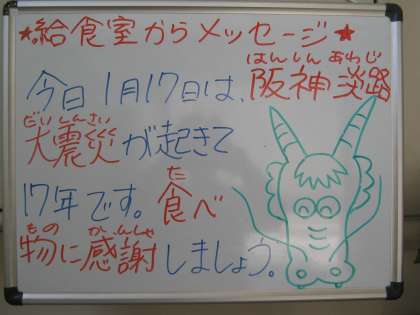 ★給食室からメッセージ★
はんしん あわじ
今日1月17日は、阪神淡路
だいしんさい
大震災が起きて
た
17年です。食べ
もの かんしゃ
物に感謝しましょう。